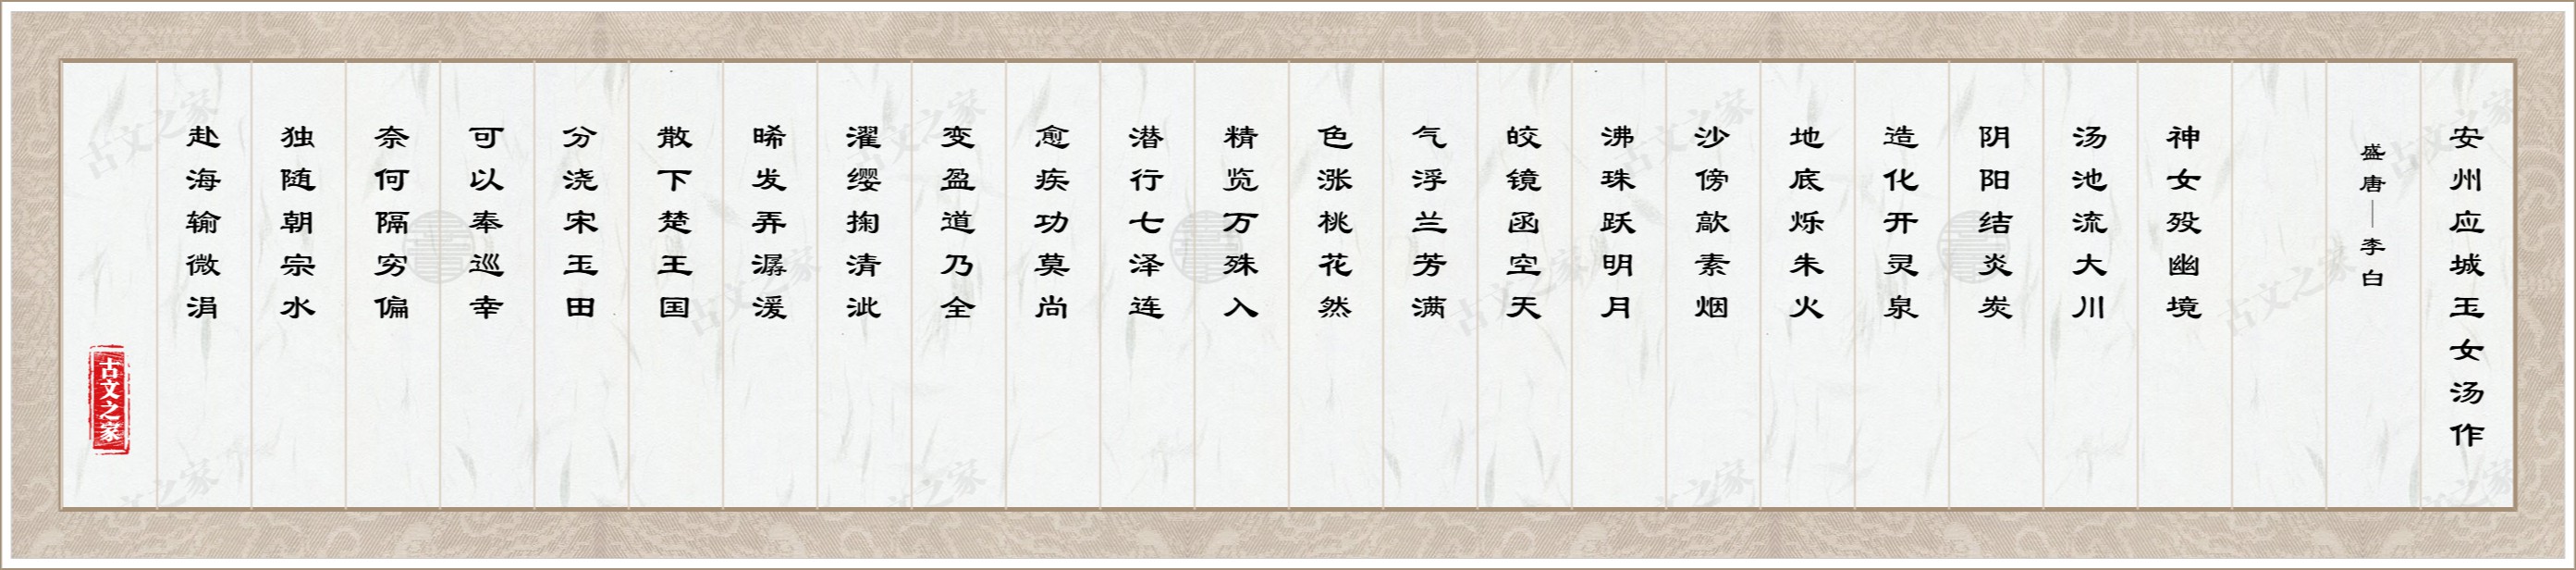 安州应城玉女汤作
盛唐—李白
神女殁幽境
汤池流大川
阴阳结炎炭
造化开灵泉
地底烁朱火
沙傍歊素烟
沸珠跃明月
皎镜函空天
气浮兰芳满
色涨桃花然
精览万殊入
潜行七泽连
愈疾功莫尚
变盈道乃全
濯缨掬清泚
晞发弄潺湲
散下楚王国
分浇宋玉田
可以奉巡幸
奈何隔穷偏
独随朝宗水
赴海输微涓
古文之家